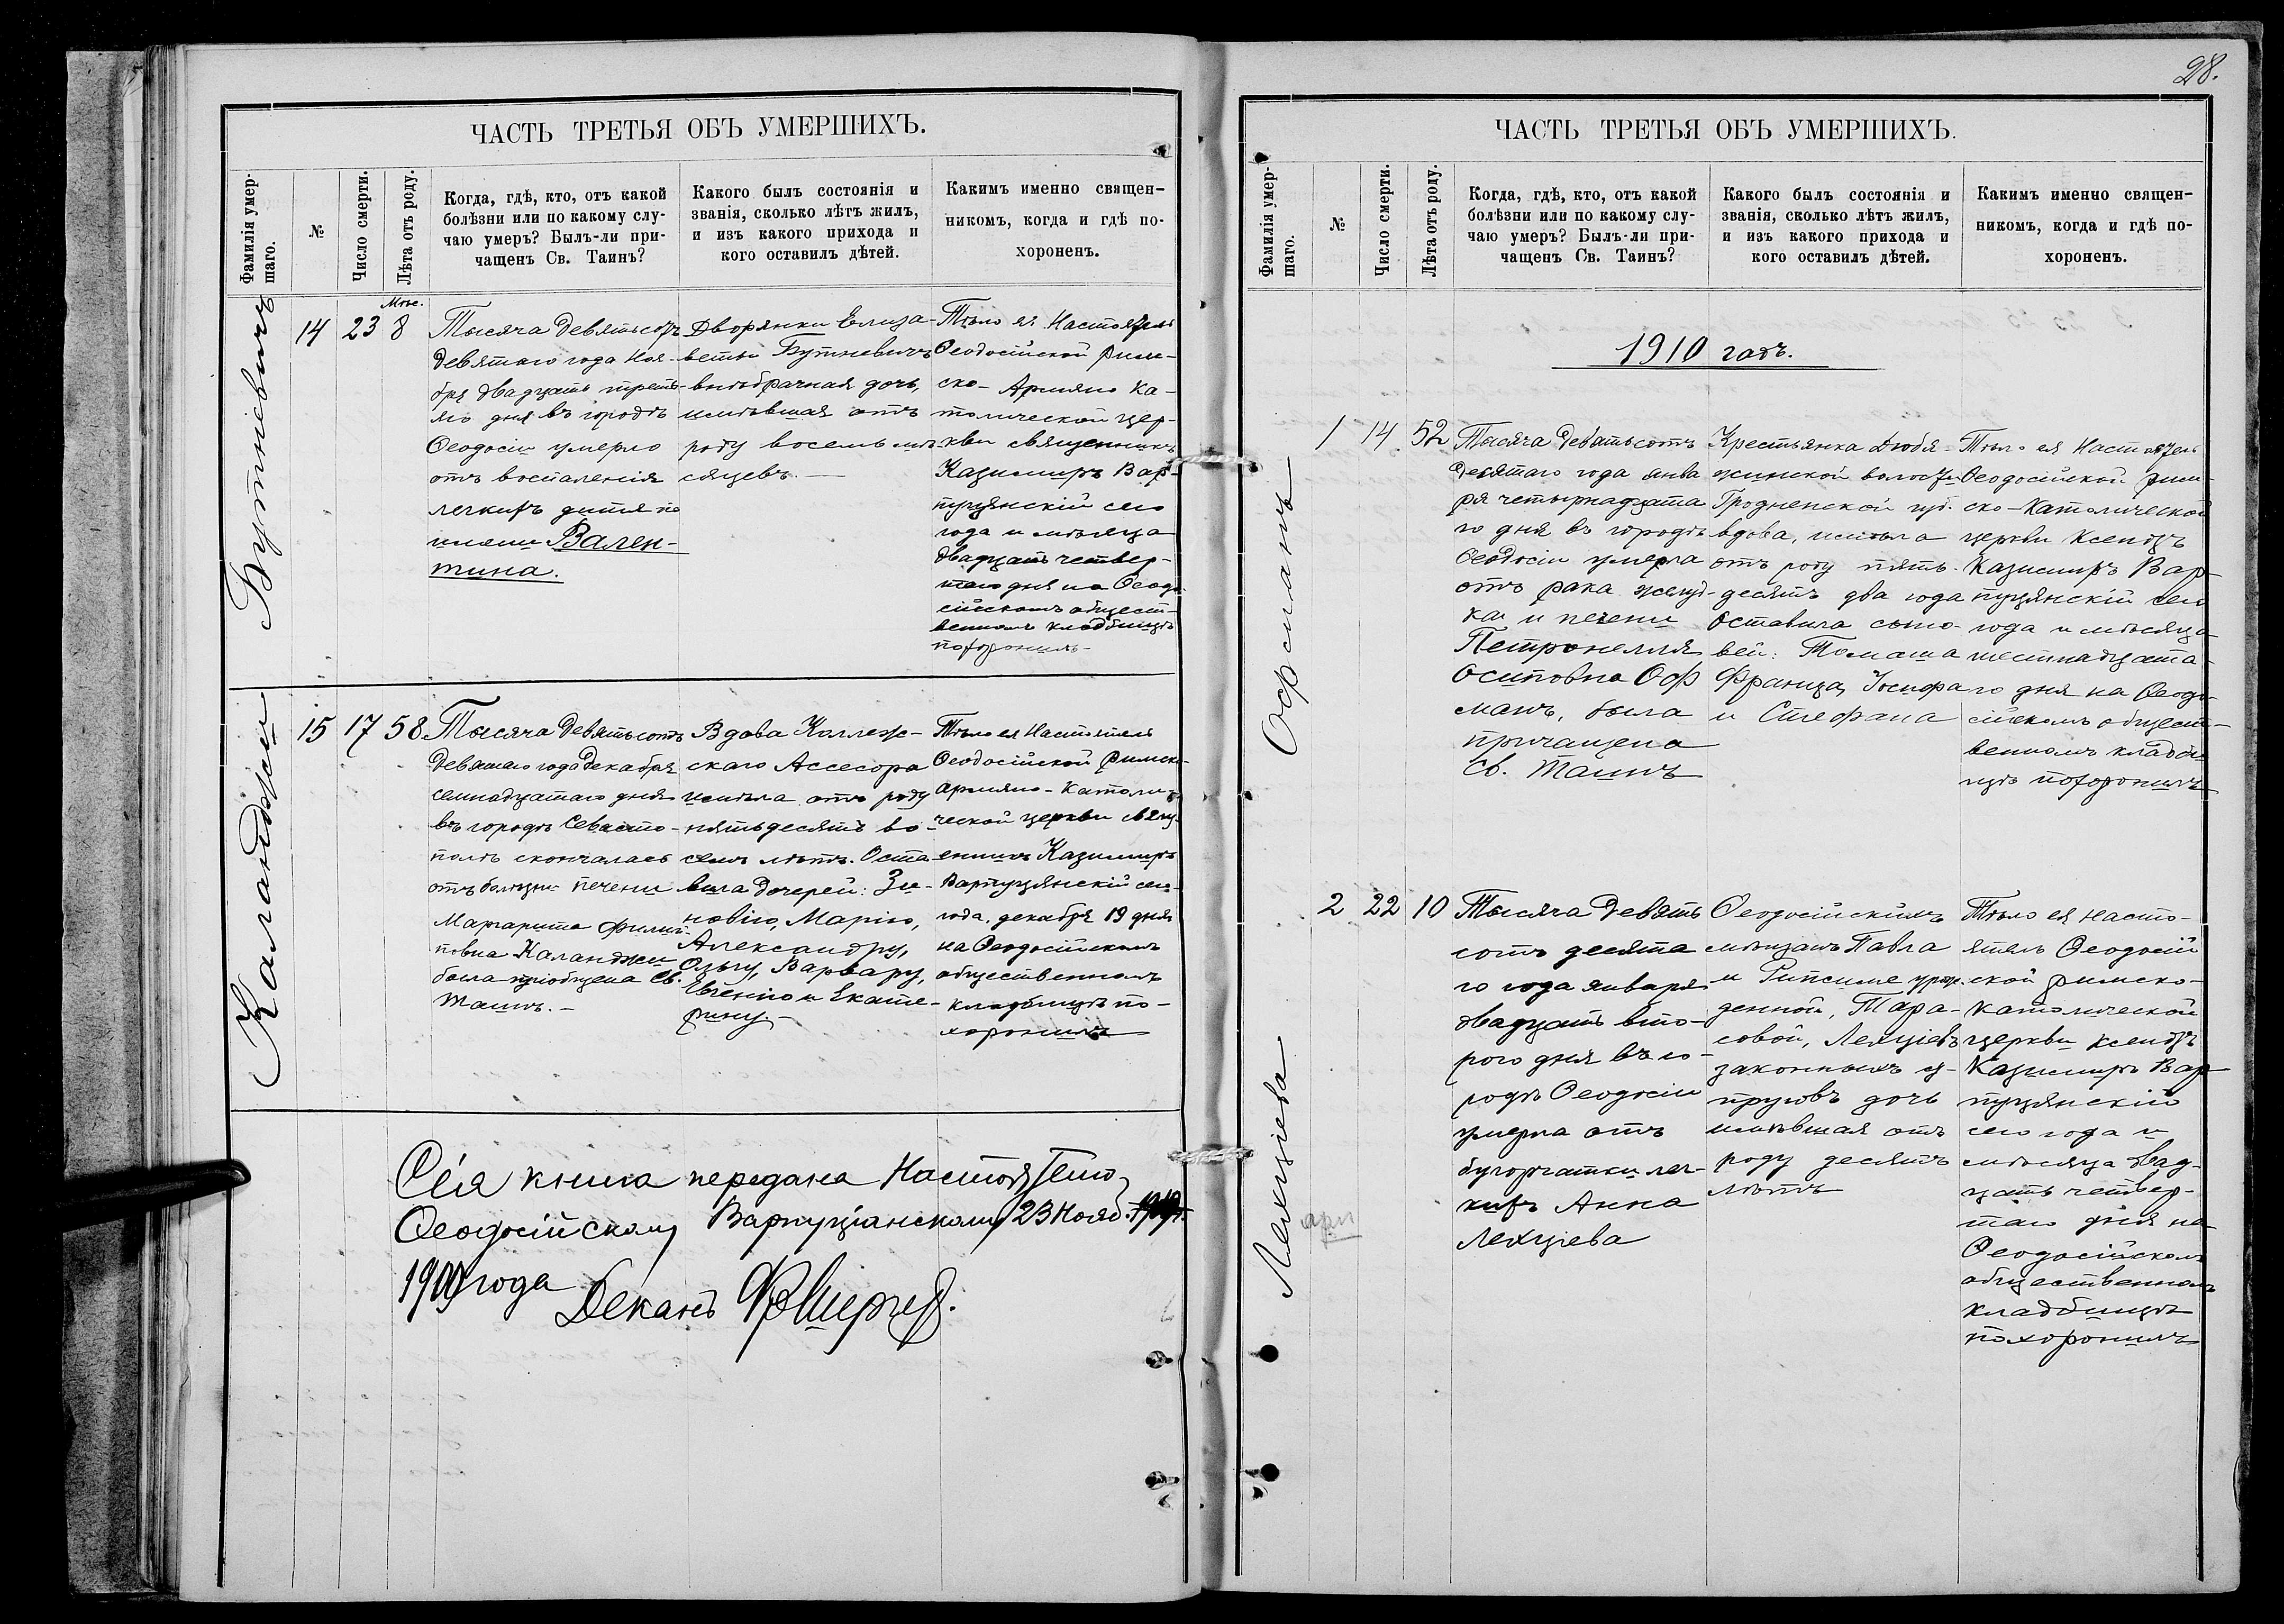 ЧАСТЬ ТРЕТЬЯ ОБЪ УМЕРШИХЪ.
Фамилія умер-
шаго.
№
Число смерти.
Лѣта отъ роду.
Когда, гдѣ, кто, отъ какой
болѣзни или по какому слу-
чаю умеръ? Былъ-ли при-
чащенъ Св. Таинъ?
Какого былъ состоянія и
званія, сколько лѣтъ жилъ,
и изъ какого прихода и
кого оставилъ дѣтей.
Какимъ именно священ-
никомъ, когда и гдѣ по-
хороненъ.
Буткевичъ
14
23
Мѣс.
8
Тысяча девятьсотъ
девятаго года Ноя-
бря двадцать треть-
яго дня въ городѣ
Ѳеодосіи умерло
отъ воспаленія
легкихъ дитя по
имени Вален-
тина.
Дворянки Елиза-
веты Буткевичъ
внѣбрачная дочь,
имѣвшая отъ
роду восемь мѣ-
сяцевъ.
Тѣло ея Настоятель
Ѳеодосійской Рим-
ско-Армяно Ка-
толической цер-
кви священникъ
Казимиръ Вар-
пуцянскій сего
года и мѣсяца
двадцать четвер-
таго дня на Ѳеодо-
сійскомъ общест-
венномъ кладбищѣ
похоронилъ
Каланджи
15
17
58
Тысяча девятьсотъ
девятаго года Декабря
семнадцатаго дня
въ городѣ Севасто-
полѣ скончалась
отъ болѣзни печени
Маргарита Филип-
повна Каланджи
была пріобщена Св.
Таинъ.
Вдова Коллеж-
скаго Ассесора
имѣла отъ роду
пятьдесятъ во-
семь лѣтъ. Оста-
вила дочерей: Зи-
новію, Марію,
Александру,
Ольгу, Варвару,
Евгенію и Екате-
рину.
Тѣло ея Настоятель
Ѳеодосійской Римско-
Армяно-Католи-
ческой церкви свящ-
енникъ Казимиръ
Варпуцянскій сего
года. декабря 19 дня
на Ѳеодосійскомъ
общественномъ
кладбищѣ по-
хоронилъ
Сія книга передана Настоятелю
Ѳеодосійскому Варпуціанскому 23 Нояб.
1909 года
Деканъ
28.
ЧАСТЬ ТРЕТЬЯ ОБЪ УМЕРШИХЪ.
Фамилія умер-
шаго.
№
Число смерти.
Лѣта отъ роду.
Когда, гдѣ, кто, отъ какой
болѣзни или по какому слу-
чаю умеръ? Былъ-ли при-
чащенъ Св. Таинъ?
Какого былъ состоянія и
званія, сколько лѣтъ жилъ,
и изъ какого прихода и
кого оставилъ дѣтей.
Какимъ именно священ-
никомъ, когда и гдѣ по-
хороненъ.
1910 годъ.
Офманъ
1
14
52
Тысяча девятьсотъ
десятаго года янва
ря четырнадцата
го дня въ городѣ
Ѳеодосіи умерла
отъ рака желуд-
ка и печени
Петронелля
Осиповна Оф
манъ, была
причащена
Св. Таинъ
Крестьянка Любя-
жинской волости
Гродненской губ.
вдова, имѣла
отъ роду пять-
десятъ два года
Оставила сыно-
вей: Томаша
Франца, Іосифа
и Стефана
Тѣло ея Настоятель
Ѳеодосійской Рим-
ско-Католической
церкви Ксендзъ
Казимиръ Вар-
пуцянскій сего
года и мѣсяца
шестнадцата-
го дня на Ѳеодо-
сійскомъ общест-
венномъ кладби
щѣ похоронилъ
Лехціева
арм
2
22
10
Тысяча девять
сотъ десята
го года января
двадцать вто-
рого дня въ го-
родѣ Ѳеодосіи
умерла отъ
бугорчатки лег-
кихъ Анна
Лехціева
Ѳеодосійскихъ
мѣщанъ Павла
и Рипсиме урож.
денной, Тара-
совой, Лехціевъ
законныхъ су-
пруговъ дочь
имѣвшая отъ
роду десять
лѣтъ
Тѣло ея насто-
ятель Ѳеодосій
ской римско-
католической
церкви ксендзъ
Казимиръ Вар
пуцянскій
сего года и
мѣсяца двад-
цать четвер-
таго дня на
Ѳеодосійскомъ
общественномъ
кладбищѣ
похоронилъ